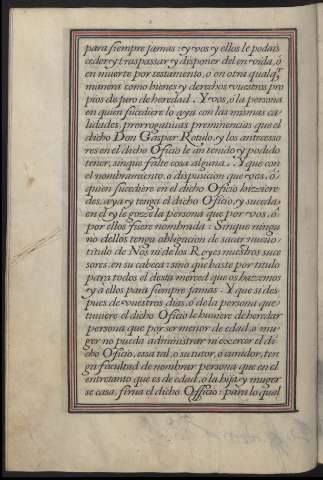 para siempre jamas: y vos y ellos le podais
ceder y traspassar y disponer del en vida, o
en muerte por testamento, o en otra qualqr
manera como bienes y derechos vuestros pro
pios de juro de heredad. Y vos, o la persona
en quien sucediere lo aya con las mismas ca
lidades, prerrogativas preminencias que el
dicho Don Gaspar Rotulo, y los antecesso
res en el dicho Officio le an tenido y podido
tener, sin que falte cosa alguna. Y que con
el nombramiento, o disposicion que vos, o
quien sucediere en el dicho Oficio hiziere
des, aya y tenga el dicho Oficio, y suceda
en el y le goze la persona que por vos, o
por ellos fuere nombrada: Sin que ningu
no dellos tenga obligacion de sacar nuevo
titulo de Nos ni de los Reyes nuestros suce
sores, en su cabeça: sino que baste por titulo
para todos el desta merced que os hazemos
y a ellos para siempre jamas. Y que si des
pues de vuestros dias, o de la persona que
tuviere el dicho Oficio le huviere de heredar
persona que por ser menor de edad, o mu
ger no pueda administrar ni exercer el di
cho Oficio, essa tal, o su tutor, o curador, ten
ga facultad de nombrar persona que en el
entretanto que es de edad, o la hija y muger
se casa, sirva el dicho Officio: para lo qual